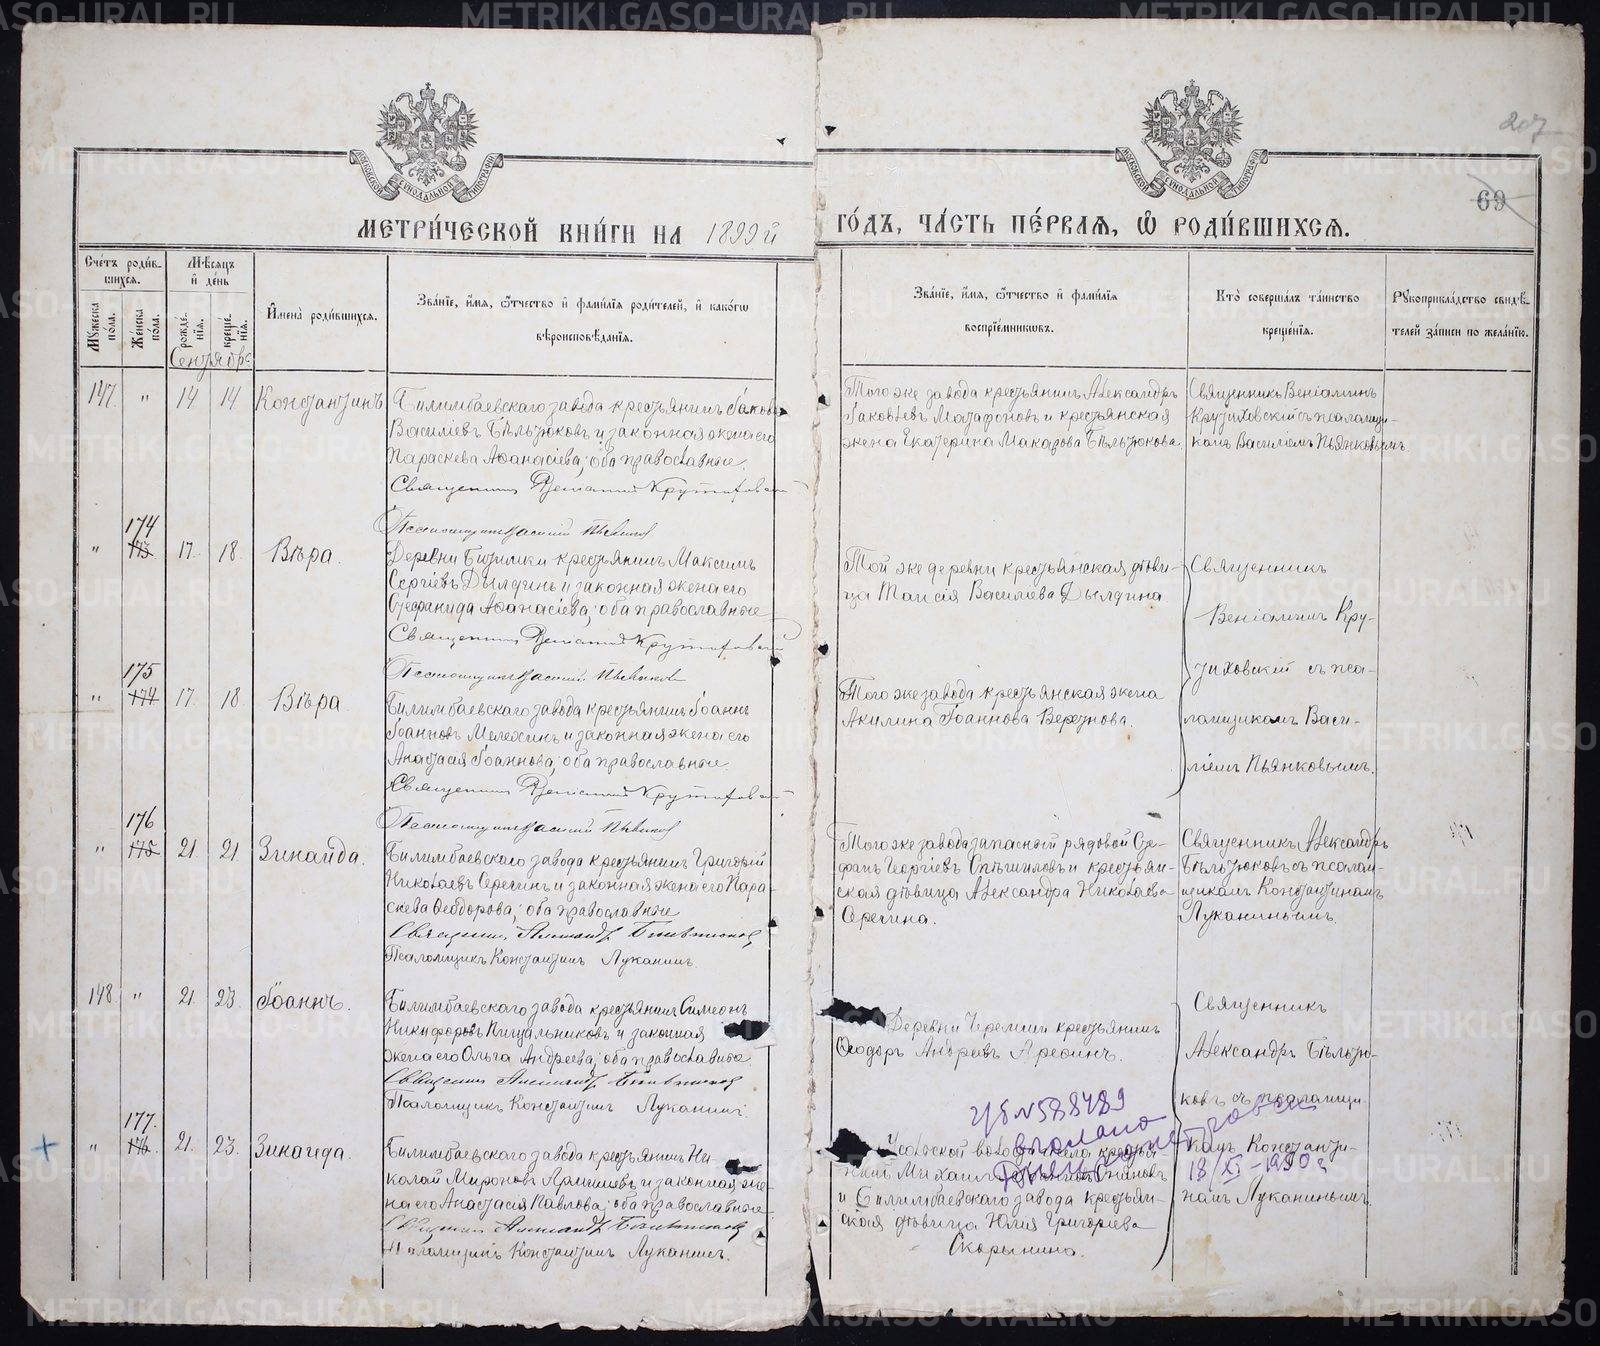 207
69
МЕТРИ́ЧЕСКОЙ КНИ́ГИ НА 1899й
ГО́ДЪ, ЧА́СТЬ ПЕ́РВАѦ, Ѡ҆ РОДИ́ВШИХСѦ.
МОСКОВСКОЙ СѴНОДАЛЬНОЙ ТИПОГРАФІИ
МОСКОВСКОЙ СѴНОДАЛЬНОЙ ТИПОГРАФІИ
Сче́тъ роди́в-
шихсѧ.
Мꙋ́жеска по́ла.
Же́нска по́ла.
Мѣ́сѧцъ
и҆ де́нь
рожде́-нїѧ.
креще́-нїѧ.
И҆мена̀ роди́вшихсѧ.
Зва́нїе, и҆́мѧ, ѻ҆́тчество и҆ фами́лїѧ роди́телей, и҆ како́гѡ
вѣроисповѣ́данїѧ.
Зва́нїе, и҆́мѧ, ѻ҆́тчество и҆ фами́лїѧ
воспрїе́мниковъ.
Кто̀ соверша́лъ та́инство
креще́нїѧ.
Рꙋкоприкла́дство свидѣ́-
телей за́писи по жела́нїю.
Сентябрь
147 " 14 14 Константинъ
Билимбаевскаго завода крестьянинъ Іаковъ
Василіевъ Бѣльтюковъ и законная жена его
Параскева Аѳанасіева; оба православные.
Священникъ Веніаминъ Крутиховскій
Псаломщикъ Василій Пьянковъ
Того же завода крестьянинъ Александръ
Іаковлевъ Матафоновъ и крестьянская
жена Екатерина Макарова Бѣльтюкова
Священникъ Веніаминъ
Крутиховскій съ псаломщи-
комъ Василіемъ Пьянковымъ
174
" 173 17 18 Вѣра.
Деревни Битимки крестьянинъ Максимъ
Сергіевъ Дылдинъ и законная жена его
Стефанида Аѳанасіева; оба православные
Священникъ Веніаминъ Крутиховскій
Псаломщикъ Василій Пьянковъ
Той же деревни крестьянская дѣви-
ца Таисія Василіева Дылдина
Священникъ
Веніаминъ Кру-
тиховскій съ пса-
ломщикомъ Васи-
ліемъ Пьянковымъ.
175
" 174 17 18 Вѣра
Билимбаевскаго завода крестьянинъ Іоаннъ
Іоанновъ Мелехинъ и законная жена его
Анастасія Іоаннова; оба православные.
Священникъ Веніаминъ Крутиховскій
Псаломщикъ Василій Пьянковъ
Того же завода крестьянская жена
Акилина Іоаннова
176
" 175 21 21 Зинаида.
Билимбаевскаго завода крестьянинъ Григорій
Николаевъ Серегинъ и законная жена его Пара-
скева Ѳеодорова; оба православные
Священникъ Александръ Бѣльтюковъ
Псаломщикъ Константинъ Луканинъ.
Того же завода запасный рядовой Сте-
фанъ Георгіевъ и крестьян-
ская дѣвица Александра Николаева
Серегина.
Священникъ Александръ
Бѣльтюковъ съ псалом-
щикомъ Константиномъ
Луканинымъ.
148 " 21 23 Іоаннъ.
Билимбаевскаго завода крестьянинъ Симеонъ
Никифоровъ Пищальниковъ и законная
жена его Ольга Андреева; оба православные
Священникъ Александръ Бѣльтюковъ
Псаломщикъ Константинъ Луканинъ.
Деревни Черемши крестьянинъ
Ѳеодоръ Андреевъ Арефинъ.
Священникъ
Александръ Бѣльтю-
ковъ съ псаломщи-
комъ Константи-
номъ Луканинымъ
177.
" 176 21. 23. Зинаида.
Билимбаевскаго завода крестьянинъ Ни-
колай Мироновъ и законная же-
на его Анастасія Павлова; оба православные
Священникъ Александръ Бѣльтюковъ
Псаломщикъ Константинъ Луканинъ.
волости села крестья-
нинъ Михаилъ
и Билимбаевскаго завода крестьян-
ская дѣвица Юлія Григоріева
Скорынина.
г/б №588489
18/XI-1950г